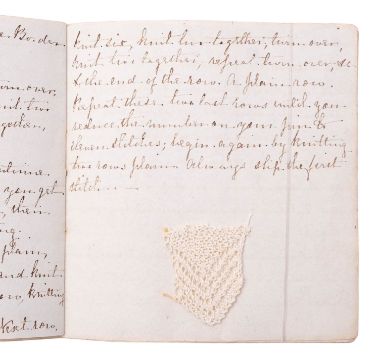 e Border.
n over,
nit two
gether,
etime.
you get
, then
ing.
plain,
and knit
row, knitting
Next row,
knit six, knit two together, turn over,
knit two together, repeat turn over, &c
to the end of the row. A plain row.
Repeat these two last rows until you
reduce the number on your pin to
eleven stitches; begin again by knitting
two rows plain. Always slip the first
stitch.